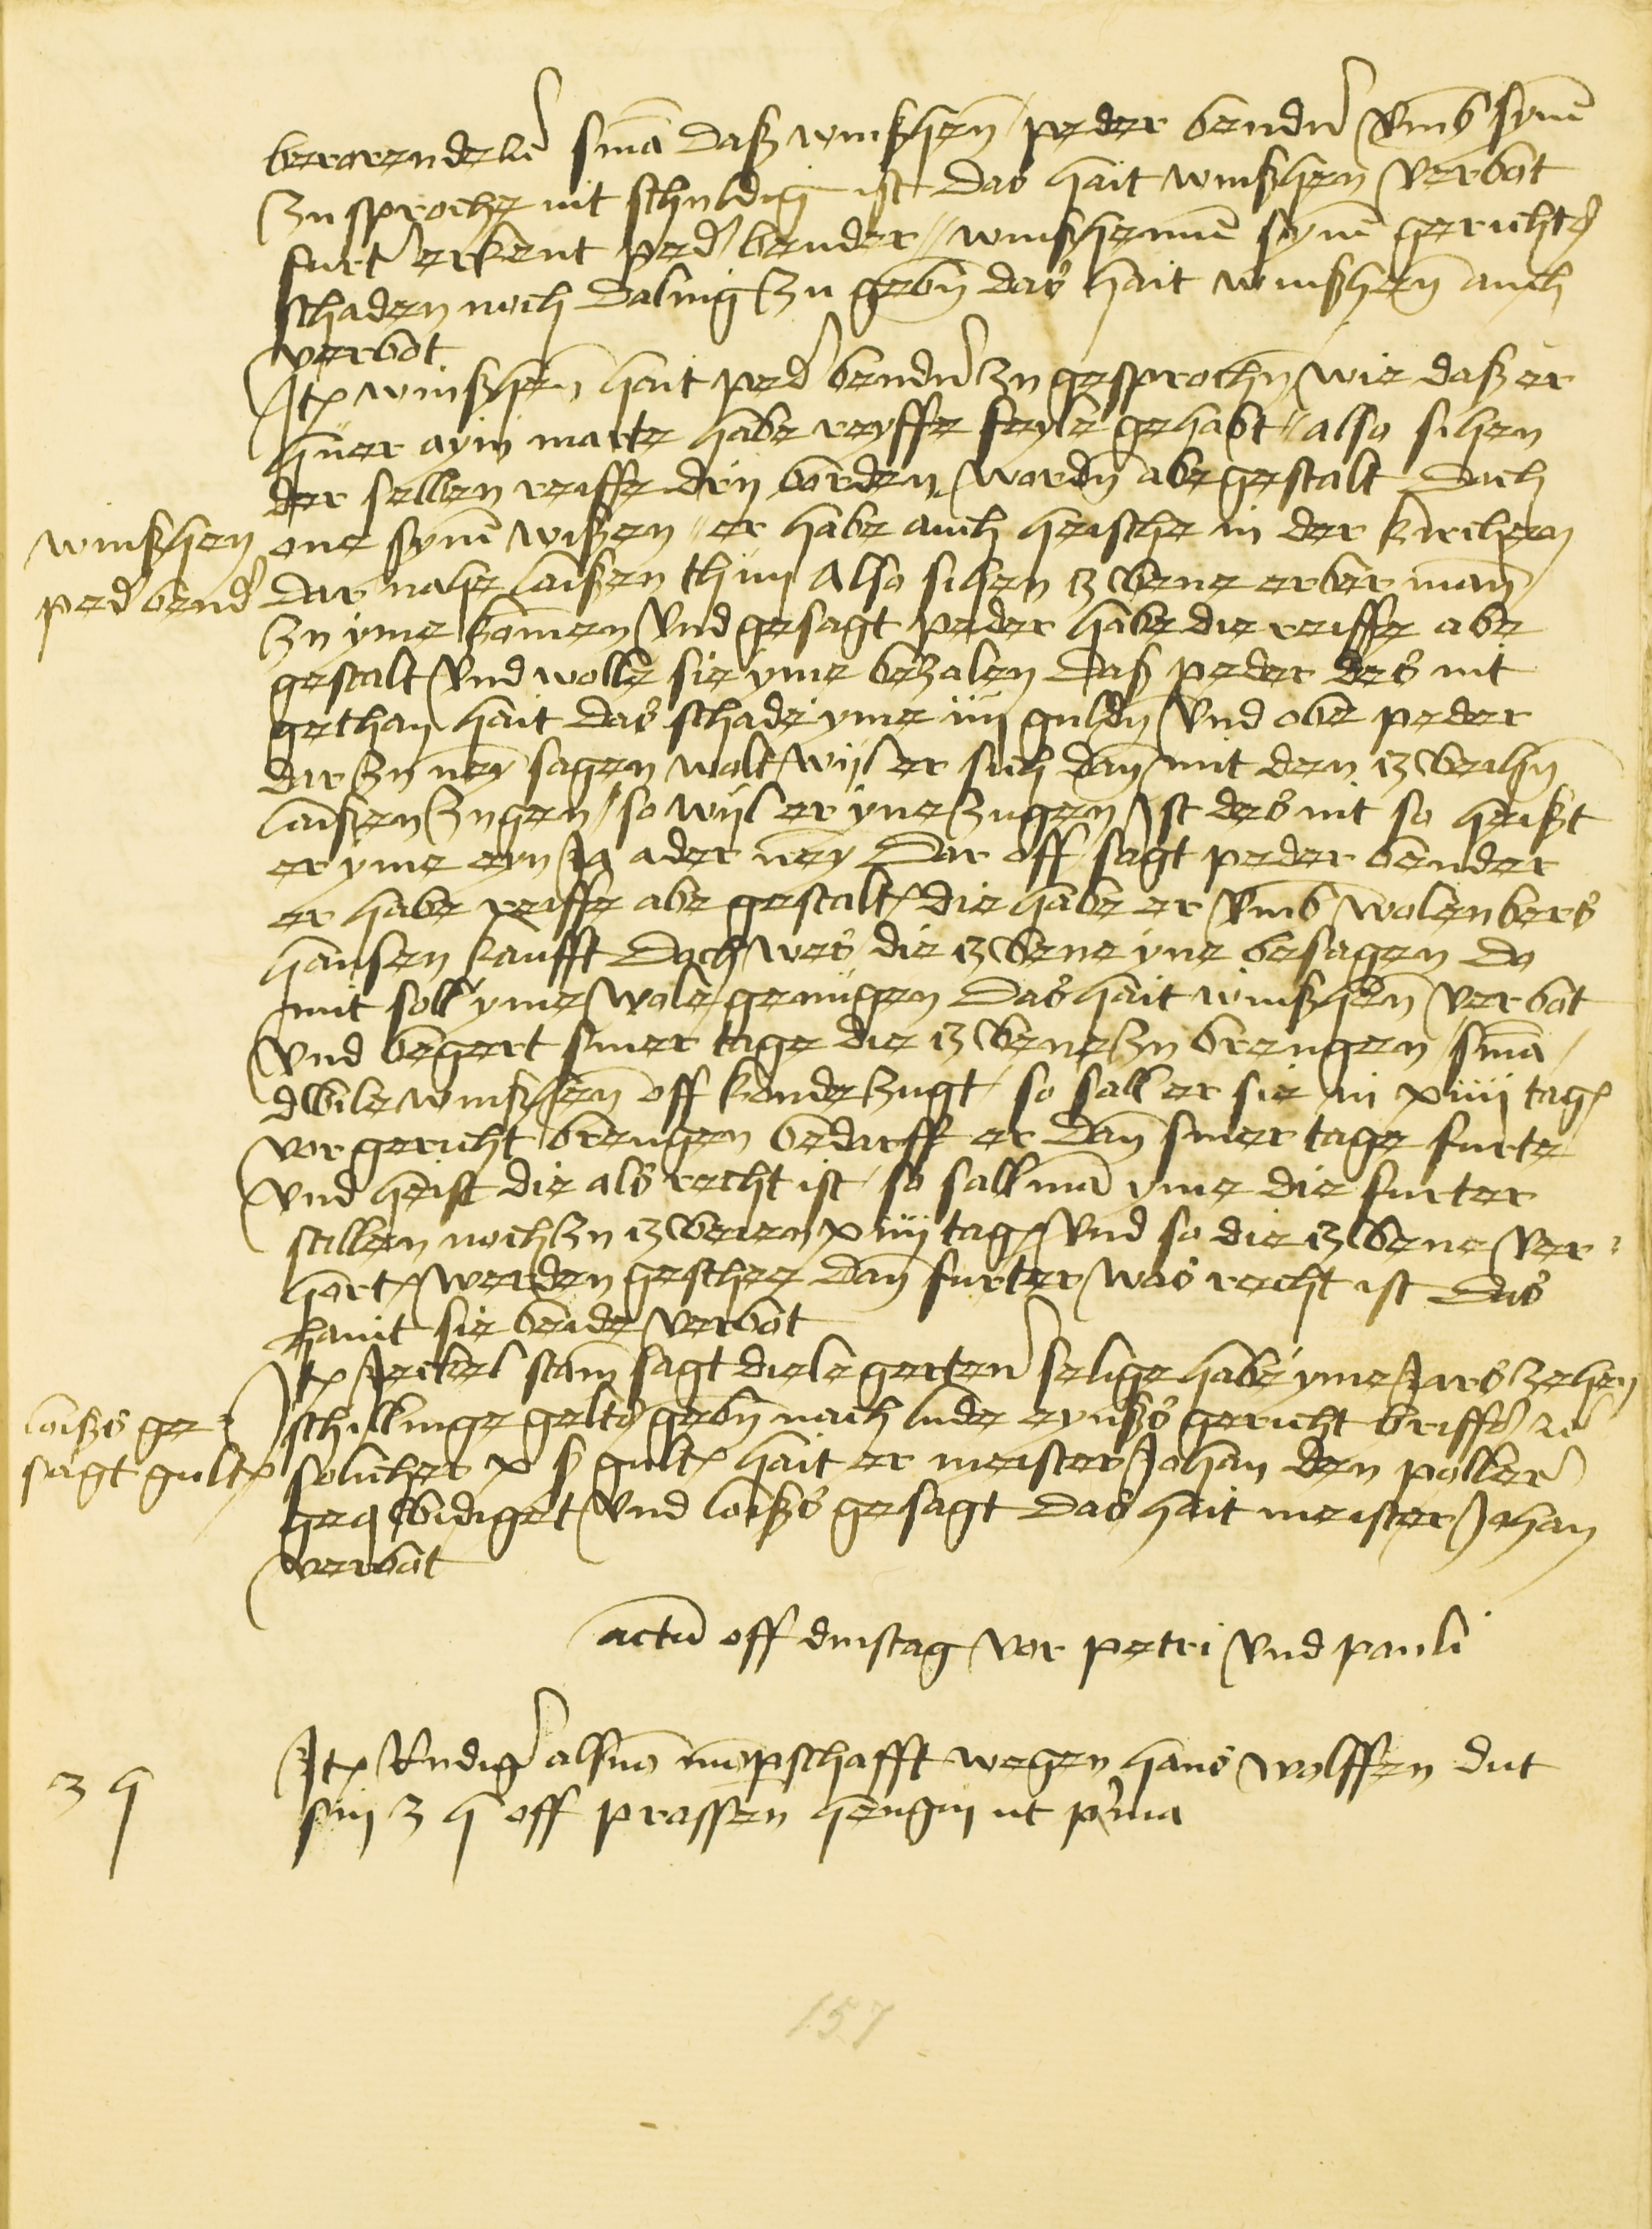 sma daß winßhen peder bendr umb syne
zusproche nit schuldig ist das hait winßhen verbot
furt erkent ped bender // winßhenne syne gerichts
schaden noch daling zu gebn das hait winßhen auch
verbot
Itē winßhen hait ped bendr zu gesprochn wie daß er
huer ayn marte habe reyffe feyle gehabt // also sihen
der selben reiffe dry borden wordn abegestalt doch
winßhen
ped bend
one syne wißen // er habe auch heische in der kirchen
dar nahe laißen thun Also sihen zwene erber man
zu yme komen und gesagt peder habe die reiffe abe
gestalt und wolle sie yme bezalen daß peder des nit
gethan hait das schade yme iiij guldn und obe peder
dar zu ney sagen wolt wil er sich dan mit den zweihn
laißen zugen / so wil er yne zugen Ist des nit so heischt
er yme eyn Ja ader ney Dar off sagt peder bender
er habe reiffe abe gestalt die habe er umb wolenbers
hansen kaufft Doch wes die zwene yne besagen do
mit soll yme wole genugen Das hait winßhen verbot
und begert siner tage die zwene zu brengen / sma /
dwile winßhen off konde zugt / so sall er sie in xiiij tagē
vor gericht brengen bedarff er dan siner tage furte
und heist die als recht ist / so sall ma yme die furter
stillen noch zu zweien xiiij tagē und so die zwene ver-
hortē werden geschee dan furter was recht ist Das
hant sie beide verbot
Itē Jeckel stam sagt diele gerten selige habe yme Jars zehen
loißs ge-
sagt gultē
schillinge gelts gebn nach lude eynßs gericht briffs
solicher x ß gultē hait er meister Johan den poller
geqwidiget und loißs gesagt Das hait meister Johan
verbot
actu off dinstag vor petri und pauli
3 h
Itē Rudigr als mopschafft wegen hans wolffen dut
sin 3 h off prassen hengin ut prima
157